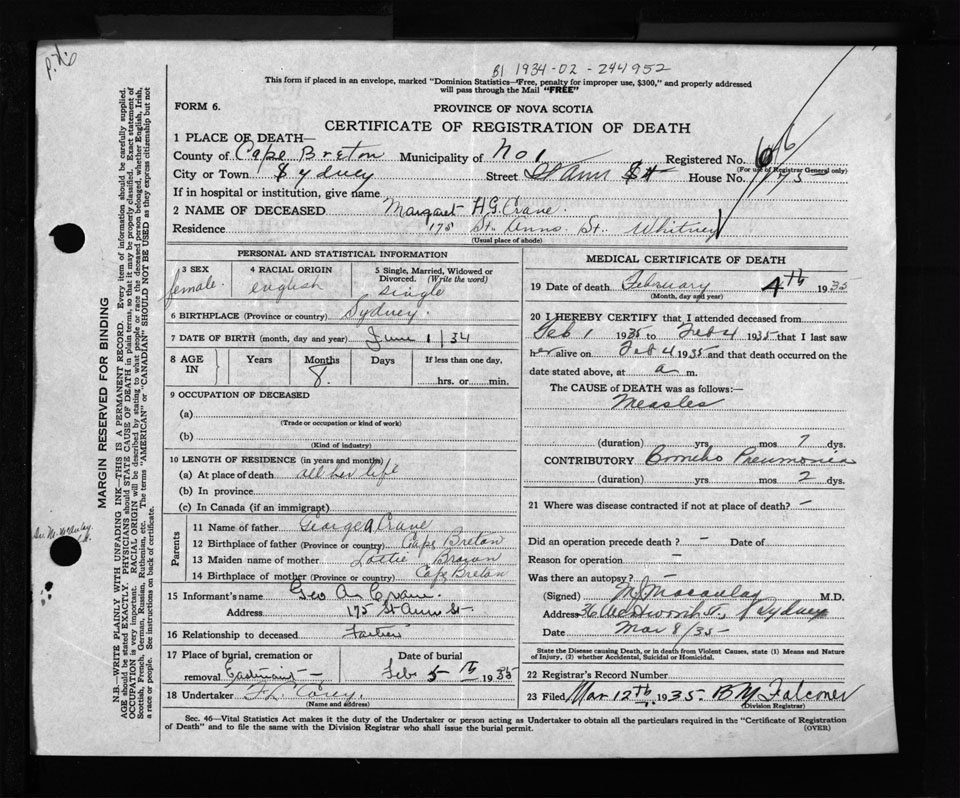 B1 1934-02-244952
This form if placed in an envelope, marked "Dominion Statistics—Free, penalty for improper use, $300," and properly addressed
will pass through the Mail "FREE"
FORM 6.
PROVINCE OF NOVA SCOTIA
CERTIFICATE OF REGISTRATION OF DEATH
1 PLACE OF DEATH—
County of Cape Breton Municipality of No 1 Registered No. 66
(For use of Registrar General only)
City or Town Sydney Street St Ann St House No. 175
If in hospital or institution, give name
2 NAME OF DECEASED Margaret H.G. Crane.
Residence 175 St. Anns. St. Whitney
(Usual place of abode)
PERSONAL AND STATISTICAL INFORMATION
3 SEX female.
4 RACIAL ORIGIN english
5 Single, Married, Widowed or Divorced. (Write the word) single
6 BIRTHPLACE (Province or country) Sydney.
7 DATE OF BIRTH (month, day and year) June 1/34
8 AGE IN Years Months 8. Days If less than one day, hrs. or min.
9 OCCUPATION OF DECEASED
(a)
(Trade or occupation or kind of work)
(b)
(Kind of industry)
10 LENGTH OF RESIDENCE (in years and months)
(a) At place of death all her life
(b) In province
(c) In Canada (if an immigrant)
Parents
11 Name of father George A Crane
12 Birthplace of father (Province or country) Cape Breton
13 Maiden name of mother Lottie Brown
14 Birthplace of mother (Province or country) Cape Breton
15 Informant's name Geo A. Crane
Address 175 St Anns St
16 Relationship to deceased Father
17 Place of burial, cremation or removal Eastmount
Date of burial Feb 5 th 1935
18 Undertaker F.L. Corey.
(Name and address)
MEDICAL CERTIFICATE OF DEATH
19 Date of death February 4th 1935
(Month, day and year)
20 I HEREBY CERTIFY that I attended deceased from
Feb 1 1935 to Feb 4 1935 that I last saw
her alive on Feb 4 1935 and that death occurred on the
date stated above, at a m.
The CAUSE of DEATH was as follows:—
Measles
(duration) yrs. mos 7 dys.
CONTRIBUTORY Broncho Pneumonia
(duration) yrs. mos 2 dys.
21 Where was disease contracted if not at place of death? –
Did an operation precede death? – Date of
Reason for operation –
Was there an autopsy? –
(Signed) M J Macaulay M.D.
Address 36 Wentworth St., Sydney
Date Mar 8/35–
State the Disease causing Death, or in Death from Violent Causes, state (1) Means and Nature
of Injury, (2) whether Accidental, Suicidal or Homicidal.
22 Registrar's Record Number
23 Filed Mar 12th, 1935– B M Falconer
(Division Registrar)
Sec. 46—Vital Statistics Act makes it the duty of the Undertaker or person acting as Undertaker to obtain all the particulars required in the "Certificate of Registration
of Death" and to file the same with the Division Registrar who shall issue the burial permit.
(OVER)
MARGIN RESERVED FOR BINDING
N.B.—WRITE PLAINLY WITH UNFADING INK—THIS IS A PERMANENT RECORD. Every item of information should be carefully supplied.
AGE should be stated EXACTLY. PHYSICIANS should STATE CAUSE OF DEATH in plain terms, so that it may be properly classified. Exact statement of
OCCUPATION is very important. RACIAL ORIGIN will be described by stating to what people or race the deceased person belonged, whether English, Irish,
Scottish, French, German, Russian, Ruthenian, etc. The terms "AMERICAN" or "CANADIAN" SHOULD NOT BE USED as they express citizenship but not
a race or people. See instructions on back of certificate.